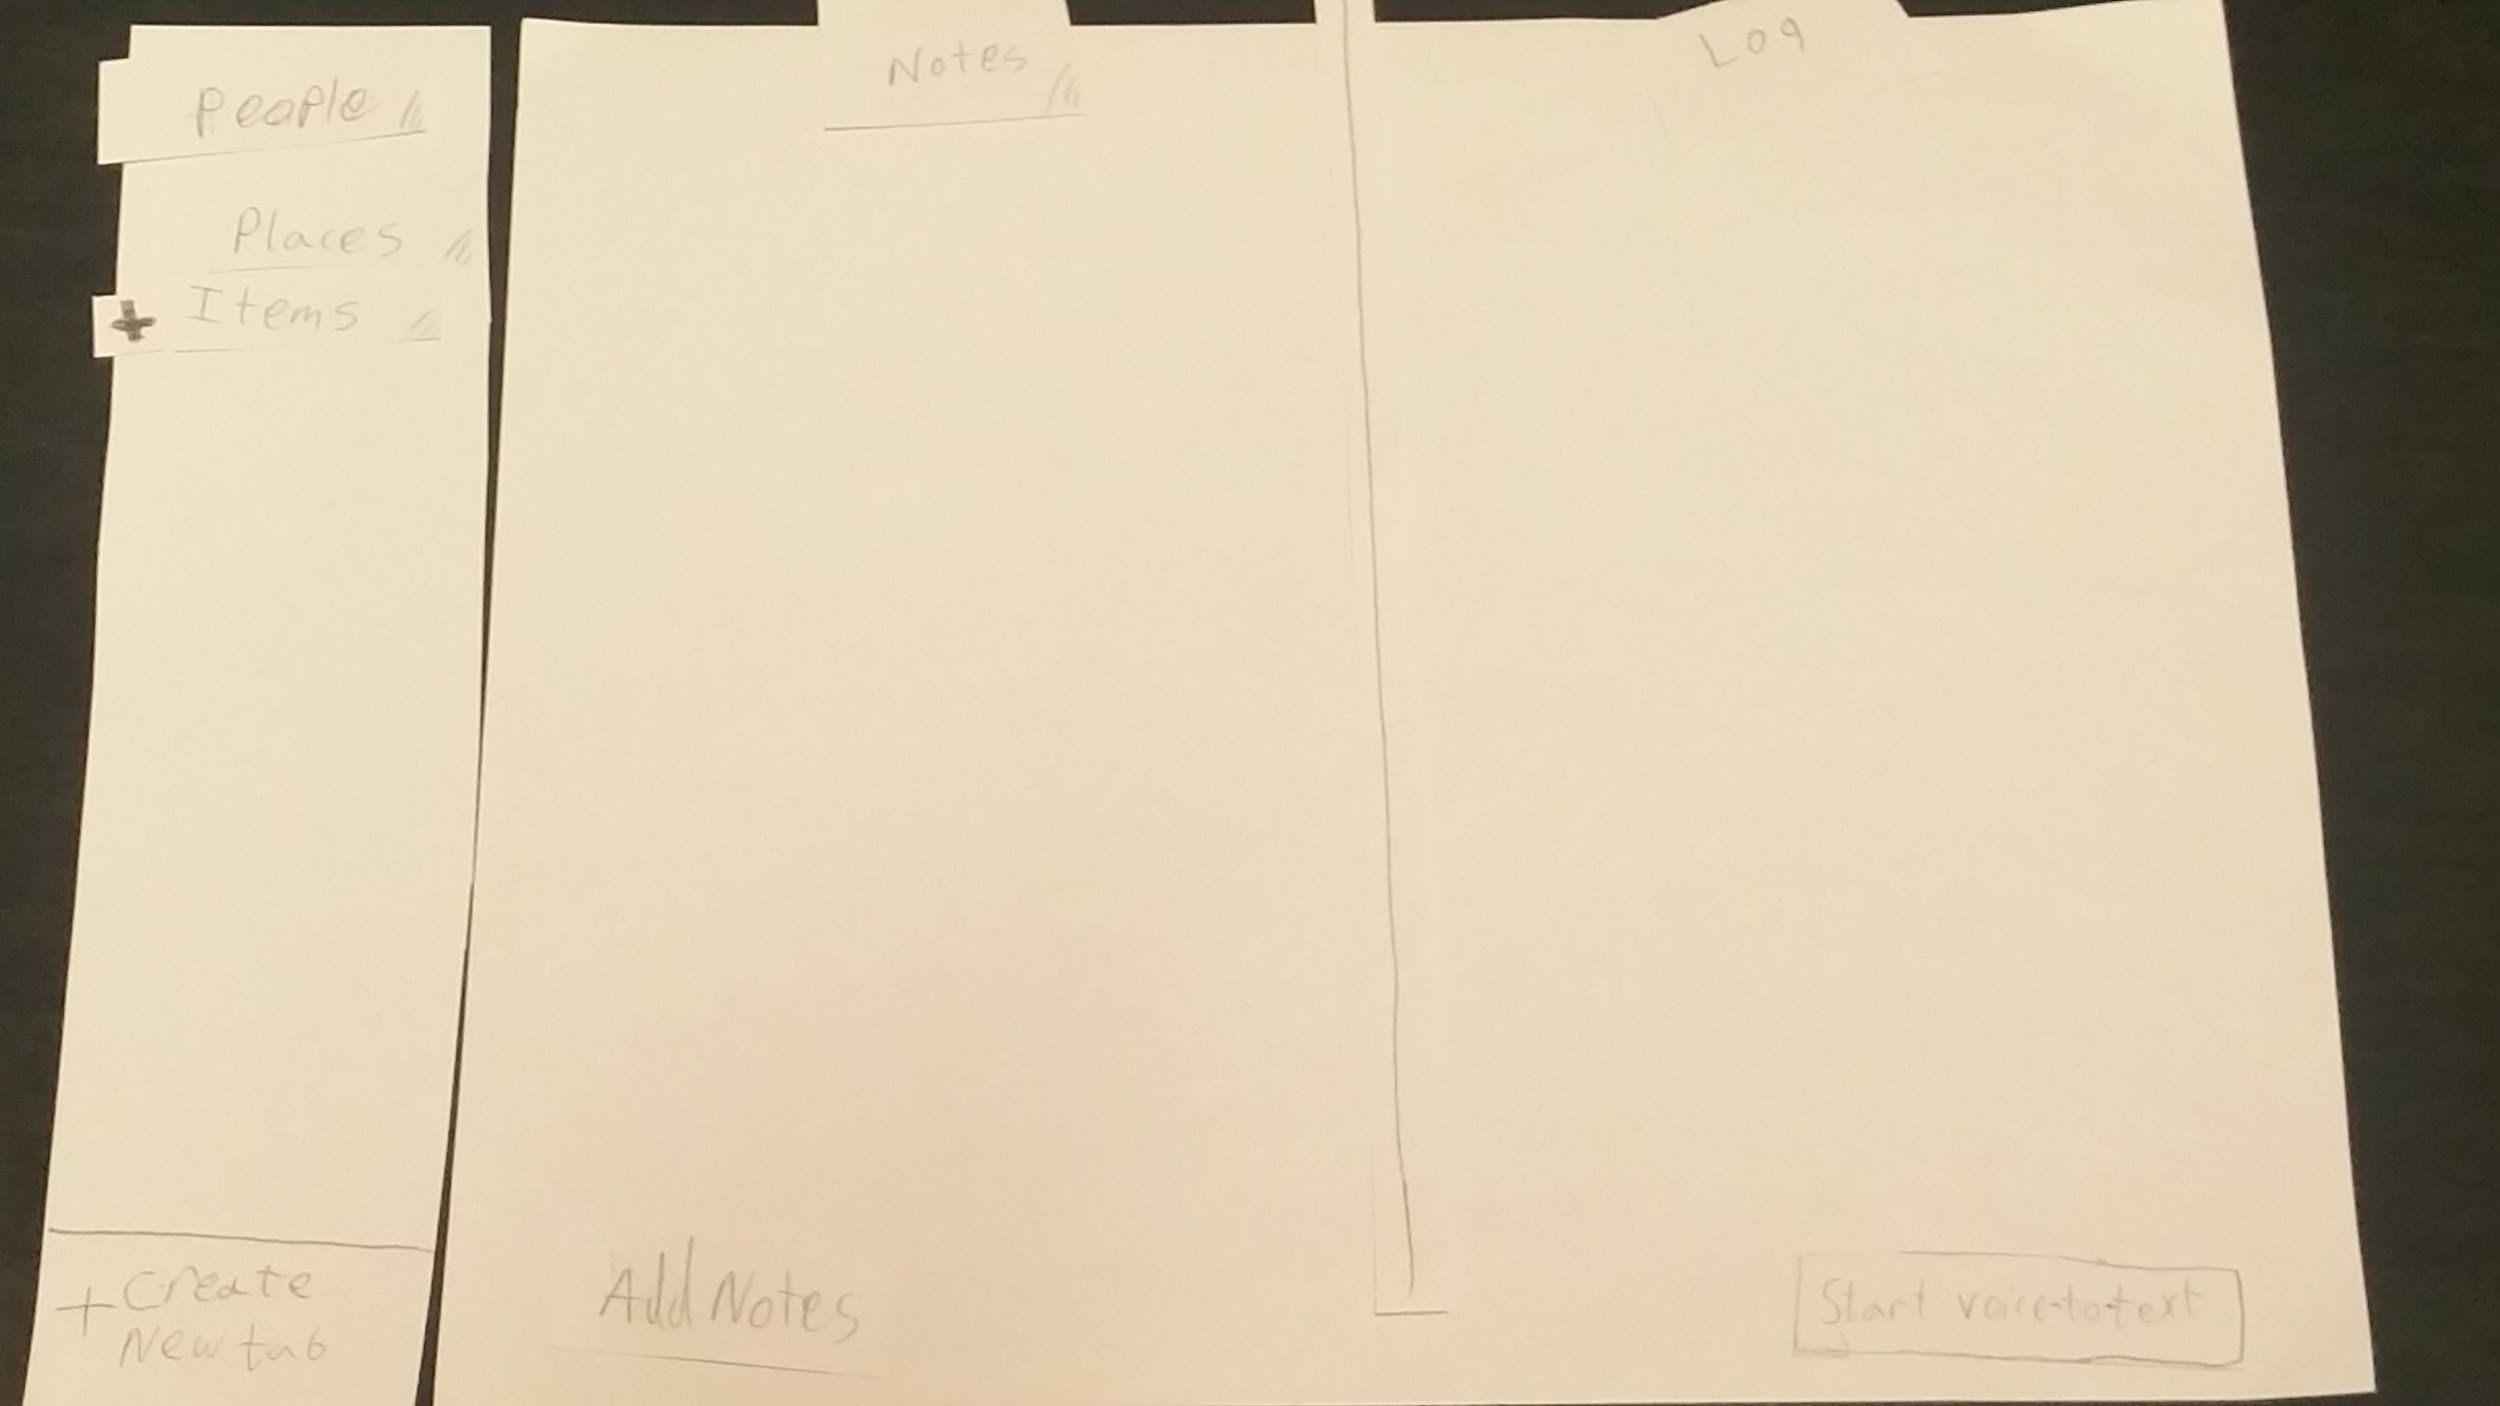 People
Places
+ Items
+ Create
New tab
Notes
Add Notes
Log
Start voice-to-text